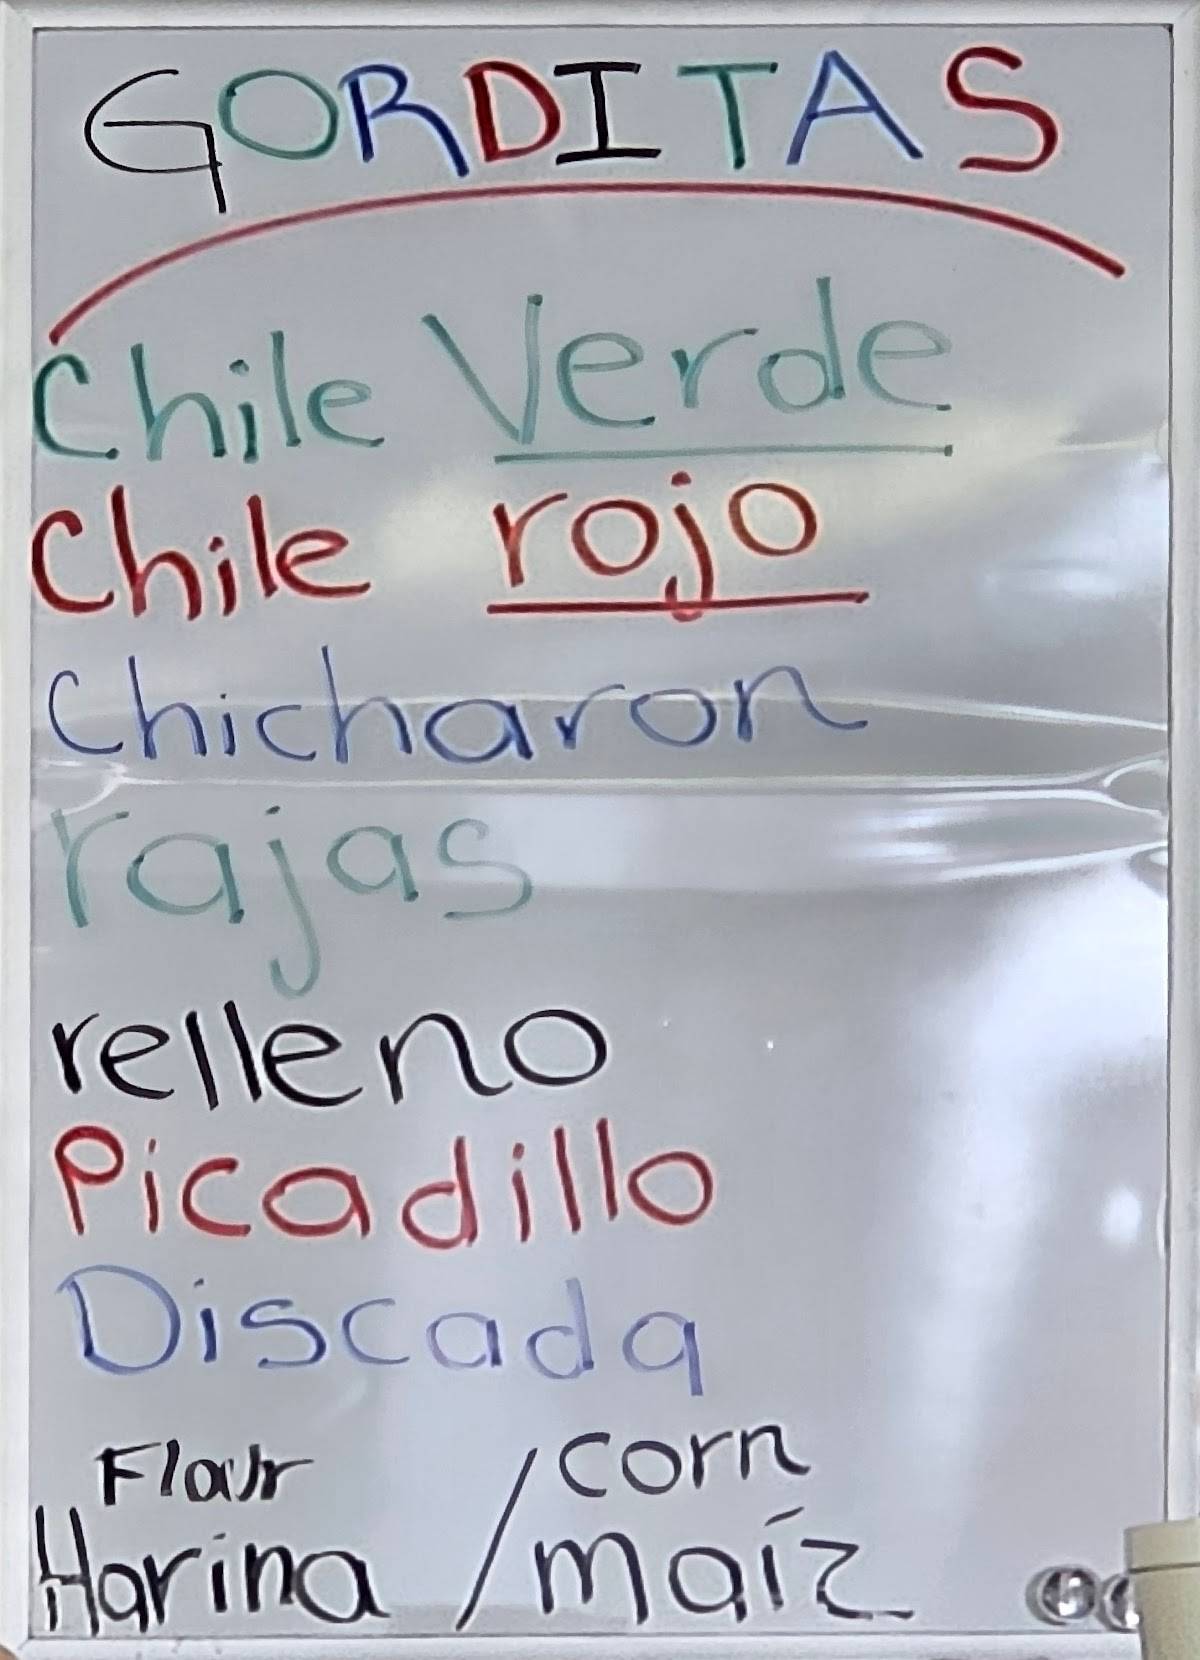 GORDITAS
Chile Verde
Chile rojo
Chicharon
rajas
relleno
Picadillo
Discada
Flour / corn
Harina / maíz